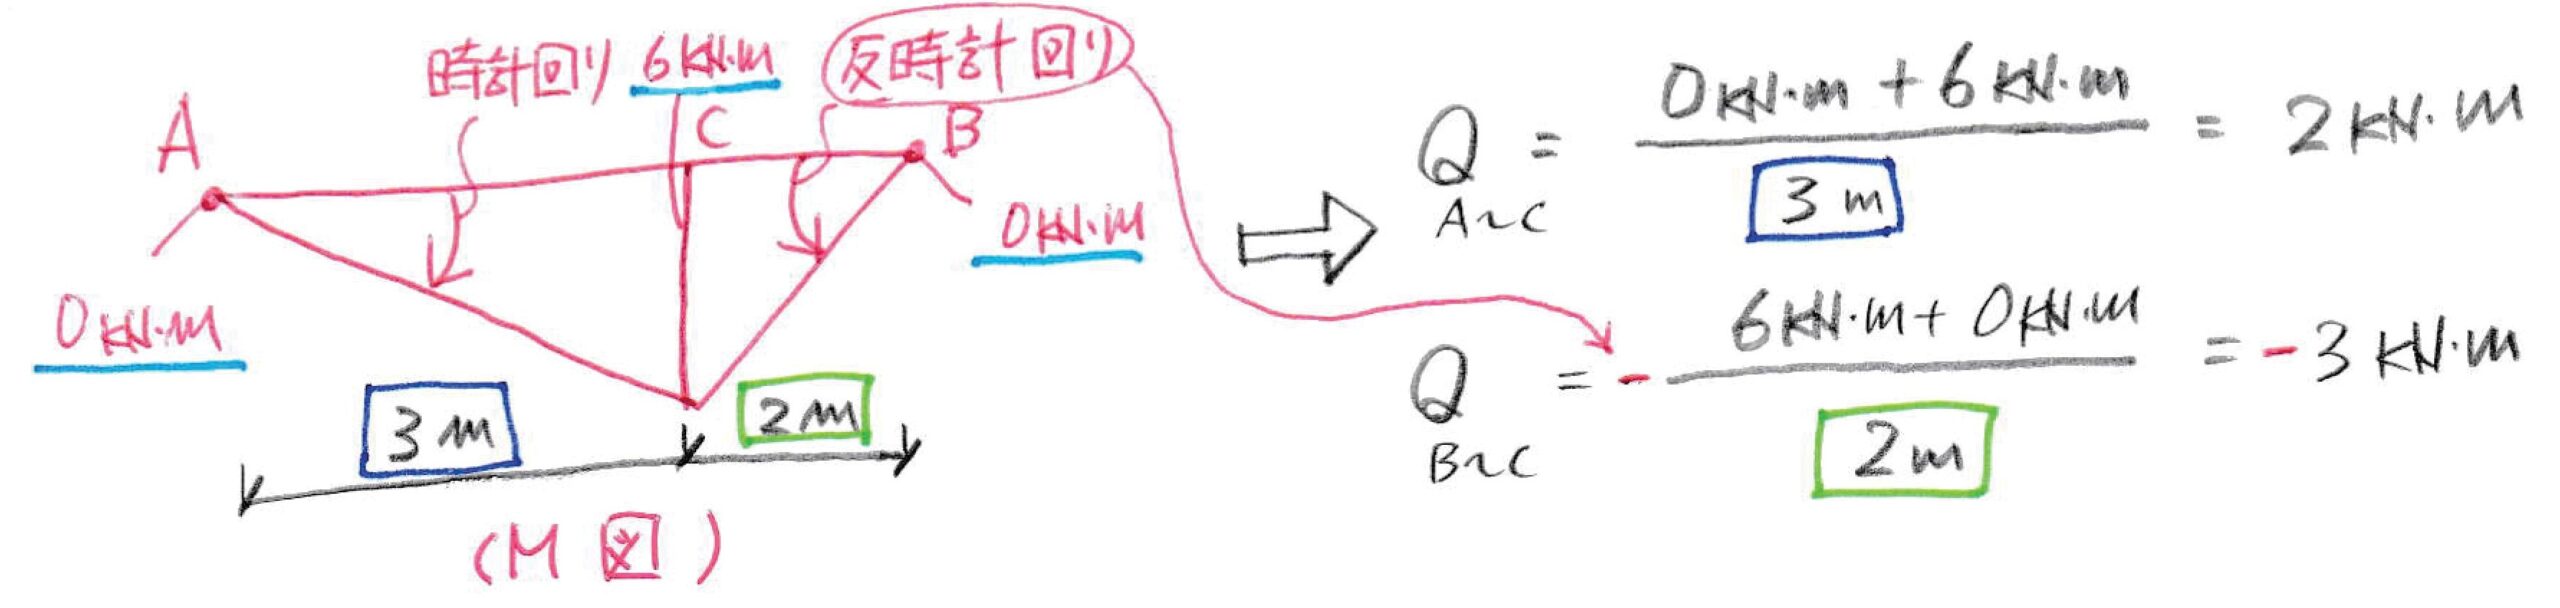 時計回り 6kN・m 反時計回り
A C B
0kN・m
0kN・m
3m 2m
(M図)
Q = 0kN・m + 6kN・m = 2kN・m
A~C 3m
Q = - 6kN・m + 0kN・m = -3kN・m
B~C 2m